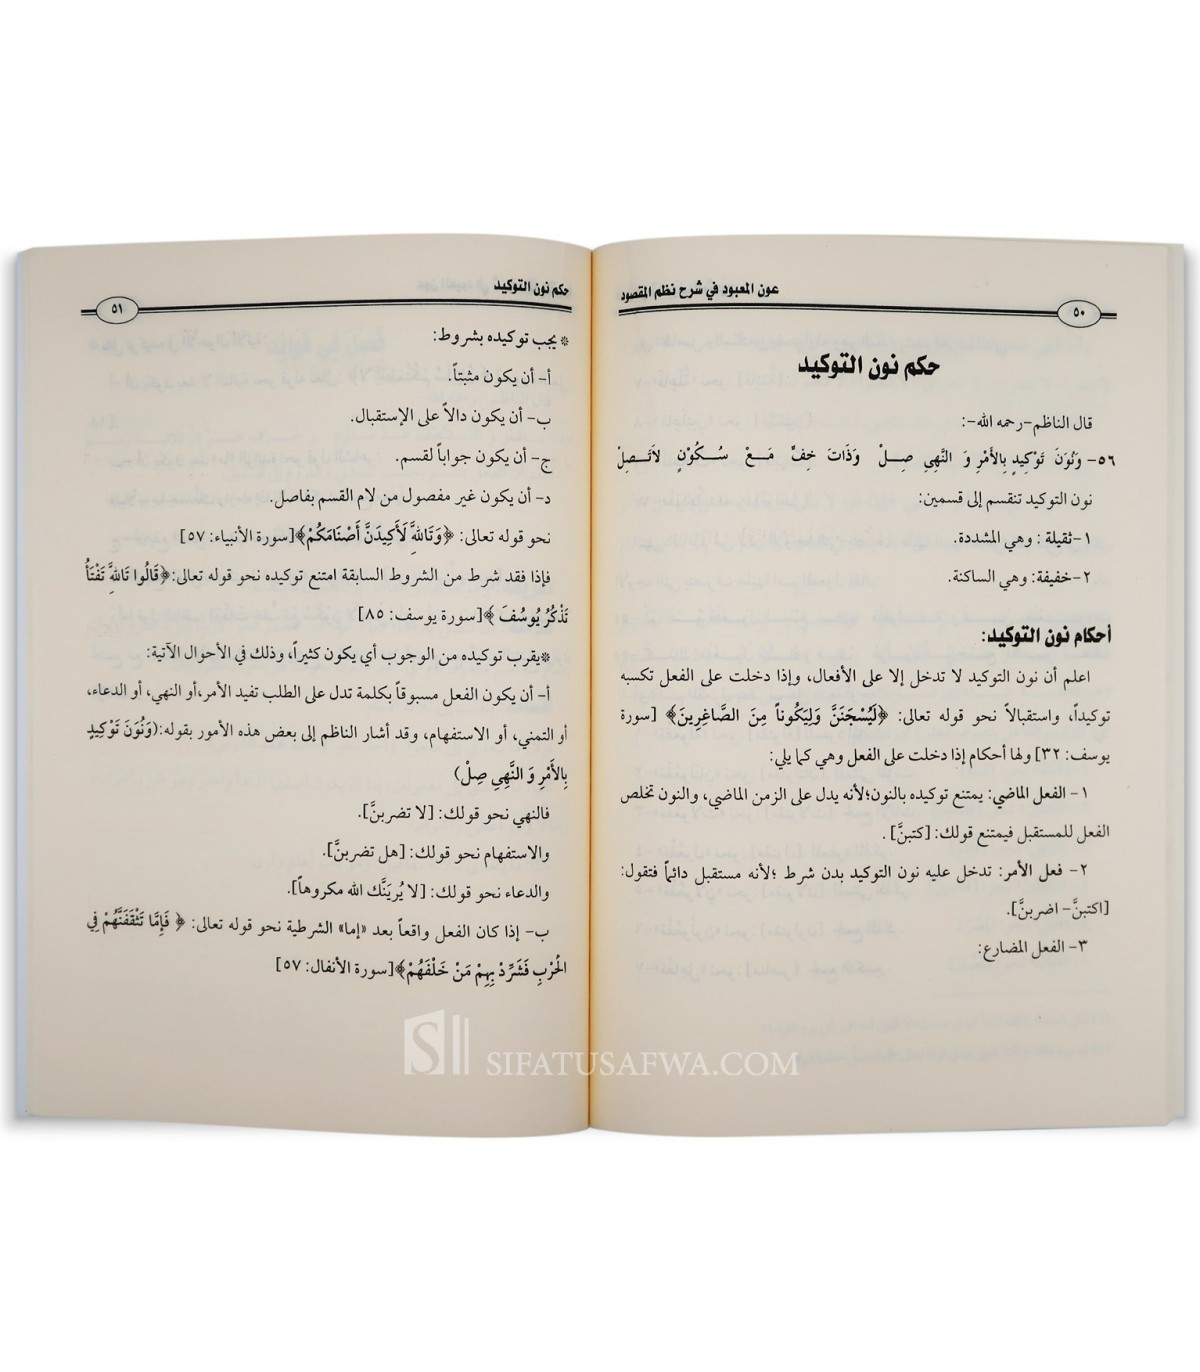 عون المعبود في شرح نظم المقصود
٥٠
حكم نون التوكيد
قال الناظم-رحمه الله-:
٥٦- وَنُونَ تَوْكِيدٍ بِالأَمْرِ وَ النَّهِي صِلْ وَذَاتَ خِفٍّ مَعْ سُكُوْنٍ لاَتَصِلْ
نون التوكيد تنقسم إلى قسمين:
١-ثقيلة : وهي المشددة.
٢-خفيفة: وهي الساكنة.
أحكام نون التوكيد:
اعلم أن نون التوكيد لا تدخل إلا على الأفعال، وإذا دخلت على الفعل تكسبه
توكيداً، واستقبالاً نحو قوله تعالى: ﴿لَيُسْجَنَنَّ وَلِيَكُوناً مِنَ الصَّاغِرِينَ﴾ [سورة
يوسف: ٣٢] ولها أحكام إذا دخلت على الفعل وهي كما يلي:
١- الفعل الماضي: يمتنع توكيده بالنون؛لأنه يدل على الزمن الماضي، والنون تخلص
الفعل للمستقبل فيمتنع قولك: [كتبنَّ] .
٢- فعل الأمر: تدخل عليه نون التوكيد بدن شرط ؛لأنه مستقبل دائماً فتقول:
[اكتبنَّ- اضربنَّ].
٣- الفعل المضارع:
حكم نون التوكيد
٥١
* يجب توكيده بشروط:
أ- أن يكون مثبتاً.
ب- أن يكون دالاً على الإستقبال.
ج- أن يكون جواباً لقسم.
د- أن يكون غير مفصول من لام القسم بفاصل.
نحو قوله تعالى: ﴿وَتَاللَّهِ لَأَكِيدَنَّ أَصْنَامَكُمْ﴾[سورة الأنبياء: ٥٧]
فإذا فقد شرط من الشروط السابقة امتنع توكيده نحو قوله تعالى:﴿قَالُوا تَاللَّهِ تَفْتَأُ
تَذْكُرُ يُوسُفَ ﴾[سورة يوسف: ٨٥]
*يقرب توكيده من الوجوب أي يكون كثيراً، وذلك في الأحوال الآتية:
أ- أن يكون الفعل مسبوقاً بكلمة تدل على الطلب تفيد الأمر،أو النهي، أو الدعاء،
أو التمني، أو الاستفهام، وقد أشار الناظم إلى بعض هذه الأمور بقوله:(وَنُونَ تَوْكِيدٍ
بِالأَمْرِ وَ النَّهِي صِلْ)
فالنهي نحو قولك: [لا تضربنَّ].
والاستفهام نحو قولك: [هل تضربنَّ].
والدعاء نحو قولك: [لا يُريَنَّك الله مكروهاً].
ب- إذا كان الفعل واقعاً بعد «إما» الشرطية نحو قوله تعالى: ﴿ فَإِمَّا تَثْقَفَنَّهُمْ فِي
الْحَرْبِ فَشَرِّدْ بِهِمْ مَنْ خَلْفَهُمْ﴾[سورة الأنفال: ٥٧]
SIFATUSAFWA.COM